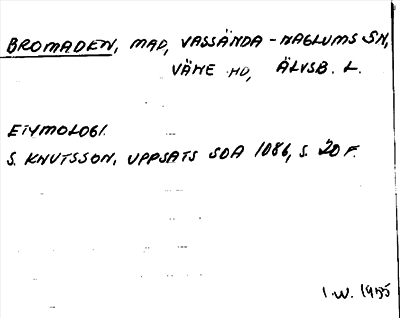 BROMADEN, MAD, VASSÄNDA-NAGLUMS SN,
VÄNE HD, ÄLVSB. L.
ETYMOLOGI.
S. KNUTSSON, UPPSATS SOA 1086, S. 20 F.
I.W. 1985